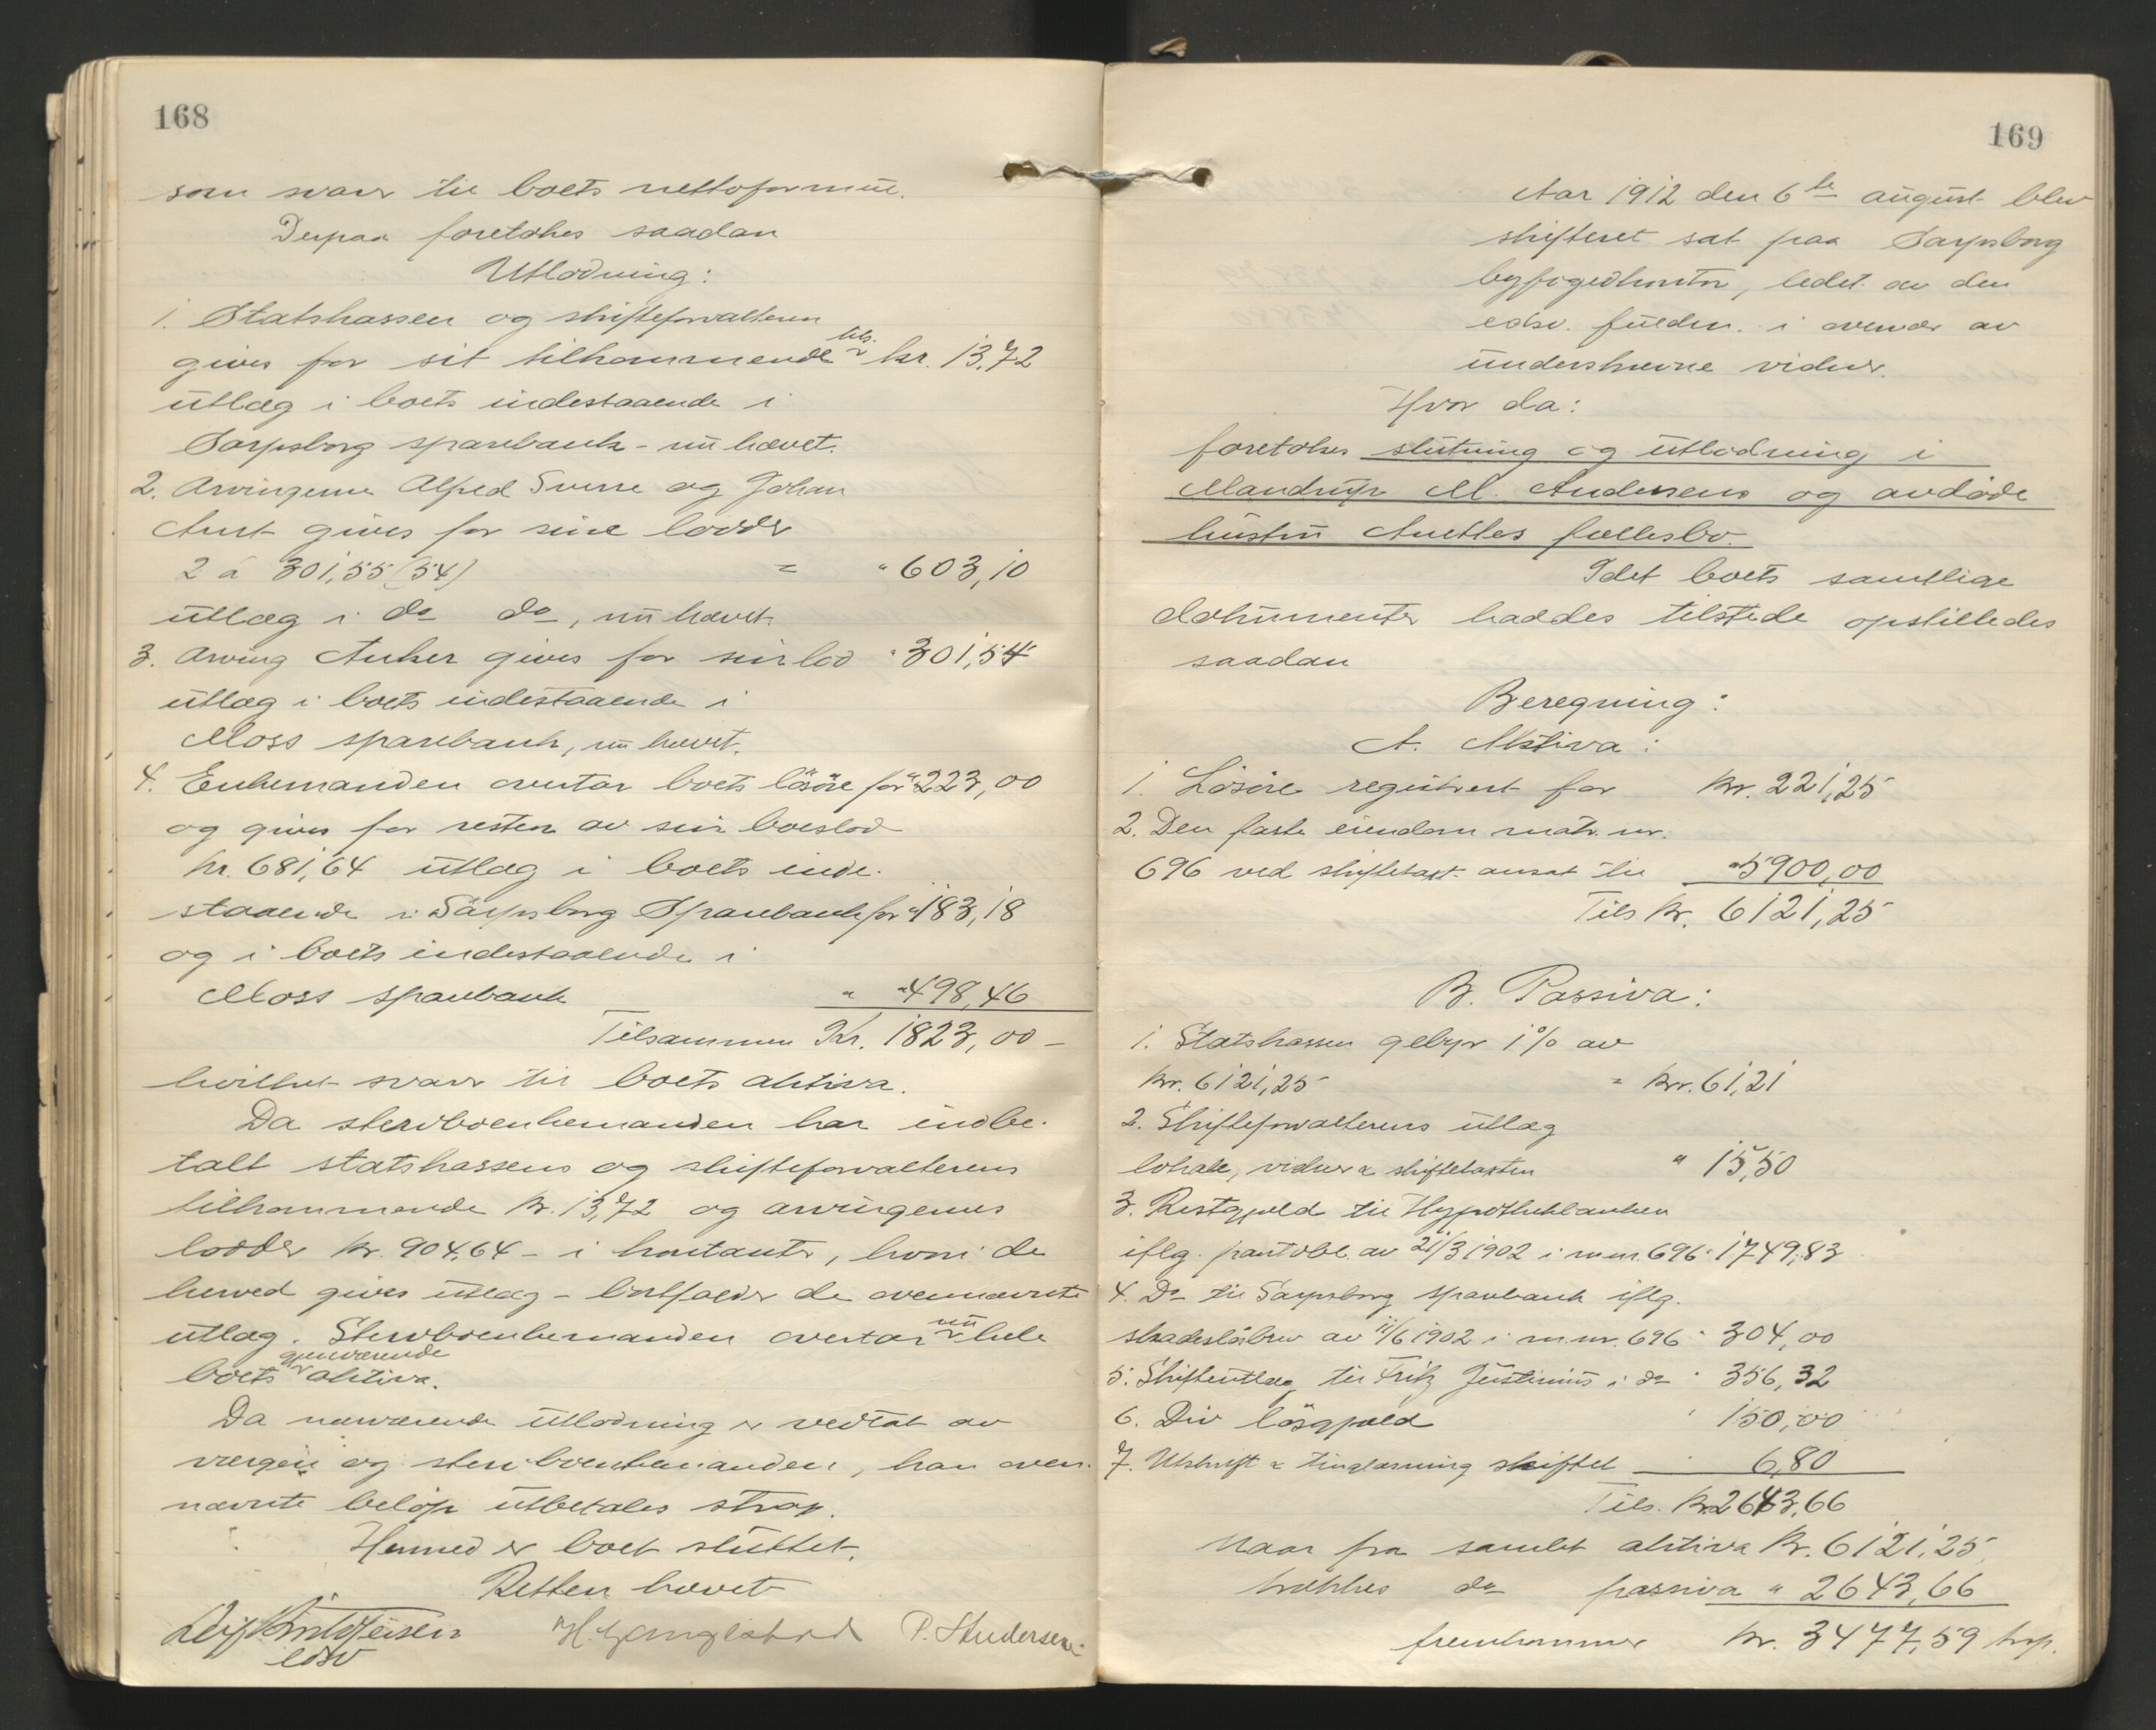 168
som svarer til boets nettoformue.
Derpaa foretokes saadan
Utlodning:
1. Statskassen og skifteforvalteren
gives for sit tilkommende tils. kr. 13,72
utlæg i boets indestaaende i
Sarpsborg sparebank - nu hævet.
2. Arvingerne Alfred Sverre og Johan
Arnt gives for sine lodder
2 á 301,55 (54) = " 603,10
utlæg i do do, nu hævet.
3. Arving Anker gives for sin lod " 301,54
utlæg i boets indestaaende i
Moss sparebank, nu hævet.
4. Enkemanden overtar boets løsøre for " 223,00
og gives for resten av sin boeslod
kr. 681,64 utlæg i boets inde-
staaende i Sarpsborg Sparebank for " 183,18
og i boets indestaaende i
Moss sparebank " " 498,46
Tilsammen Kr. 1823,00 -
hvilket svarer til boets aktiva.
Da stervboenkemanden har indbe-
talt statskassens og skifteforvalterens
tilkommende kr. 13,72 og arvingenes
lodder kr. 904,64 - i kontanter, hvori de
herved gives utlæg - bortfalder de ovennævnte
utlæg. Stervboenkemanden overtar nu hele
boets gjenværende aktiva.
Da nærværende utlodning er vedtat av
vergen og stervboenkemanden, kan oven-
nævnte beløp utbetales strax.
Hermed er boet sluttet.
Retten hævet
edsv
P. Andersen
169
Aar 1912 den 6te august blev
skifteret sat paa Sarpsborg
byfogedkontor, ledet av den
edsv. fuldm. i overvær av
underskrevne vidner.
Hvor da:
foretokes slutning og utlodning i
Mandrup M. Andersens og avdøde
hustru Anettes fællesbo.
Idet boets samtlige
dokumenter haddes tilstede opstilledes
saadan
Beregning:
A. Aktiva:
1. Løsøre registrert for kr. 221,25
2. Den faste eiendom matr. nr.
696 ved skiftetakst ansat til " 5900,00
Tils kr. 6121,25
B. Passiva:
1. Statskassen gebyr 1% av
kr. 6121,25 = kr. 61,21
2. Skifteforvalterens utlæg
lokale, vidner & skiftetaksten " 15,50
3. Restgjeld til Hypothekbanken
iflg. pantobl. av 21/3 1902 i m.nr. 696 " 1749,83
4. Do til Sarpsborg sparebank iflg.
skadesløsbrev av 11/6 1902 i m.nr. 696 " 304,00
5. Skifteutlæg til Fritz Justinius i do " 356,32
6. Div løsgjeld " 150,00
7. Utskrift & tinglæsning skiftet " 6,80
Tils. kr. 2643,66
Naar fra samlet aktiva kr. 6121,25
trækkes do passiva " 2643,66
fremkommer kr. 3477,59 trsp.